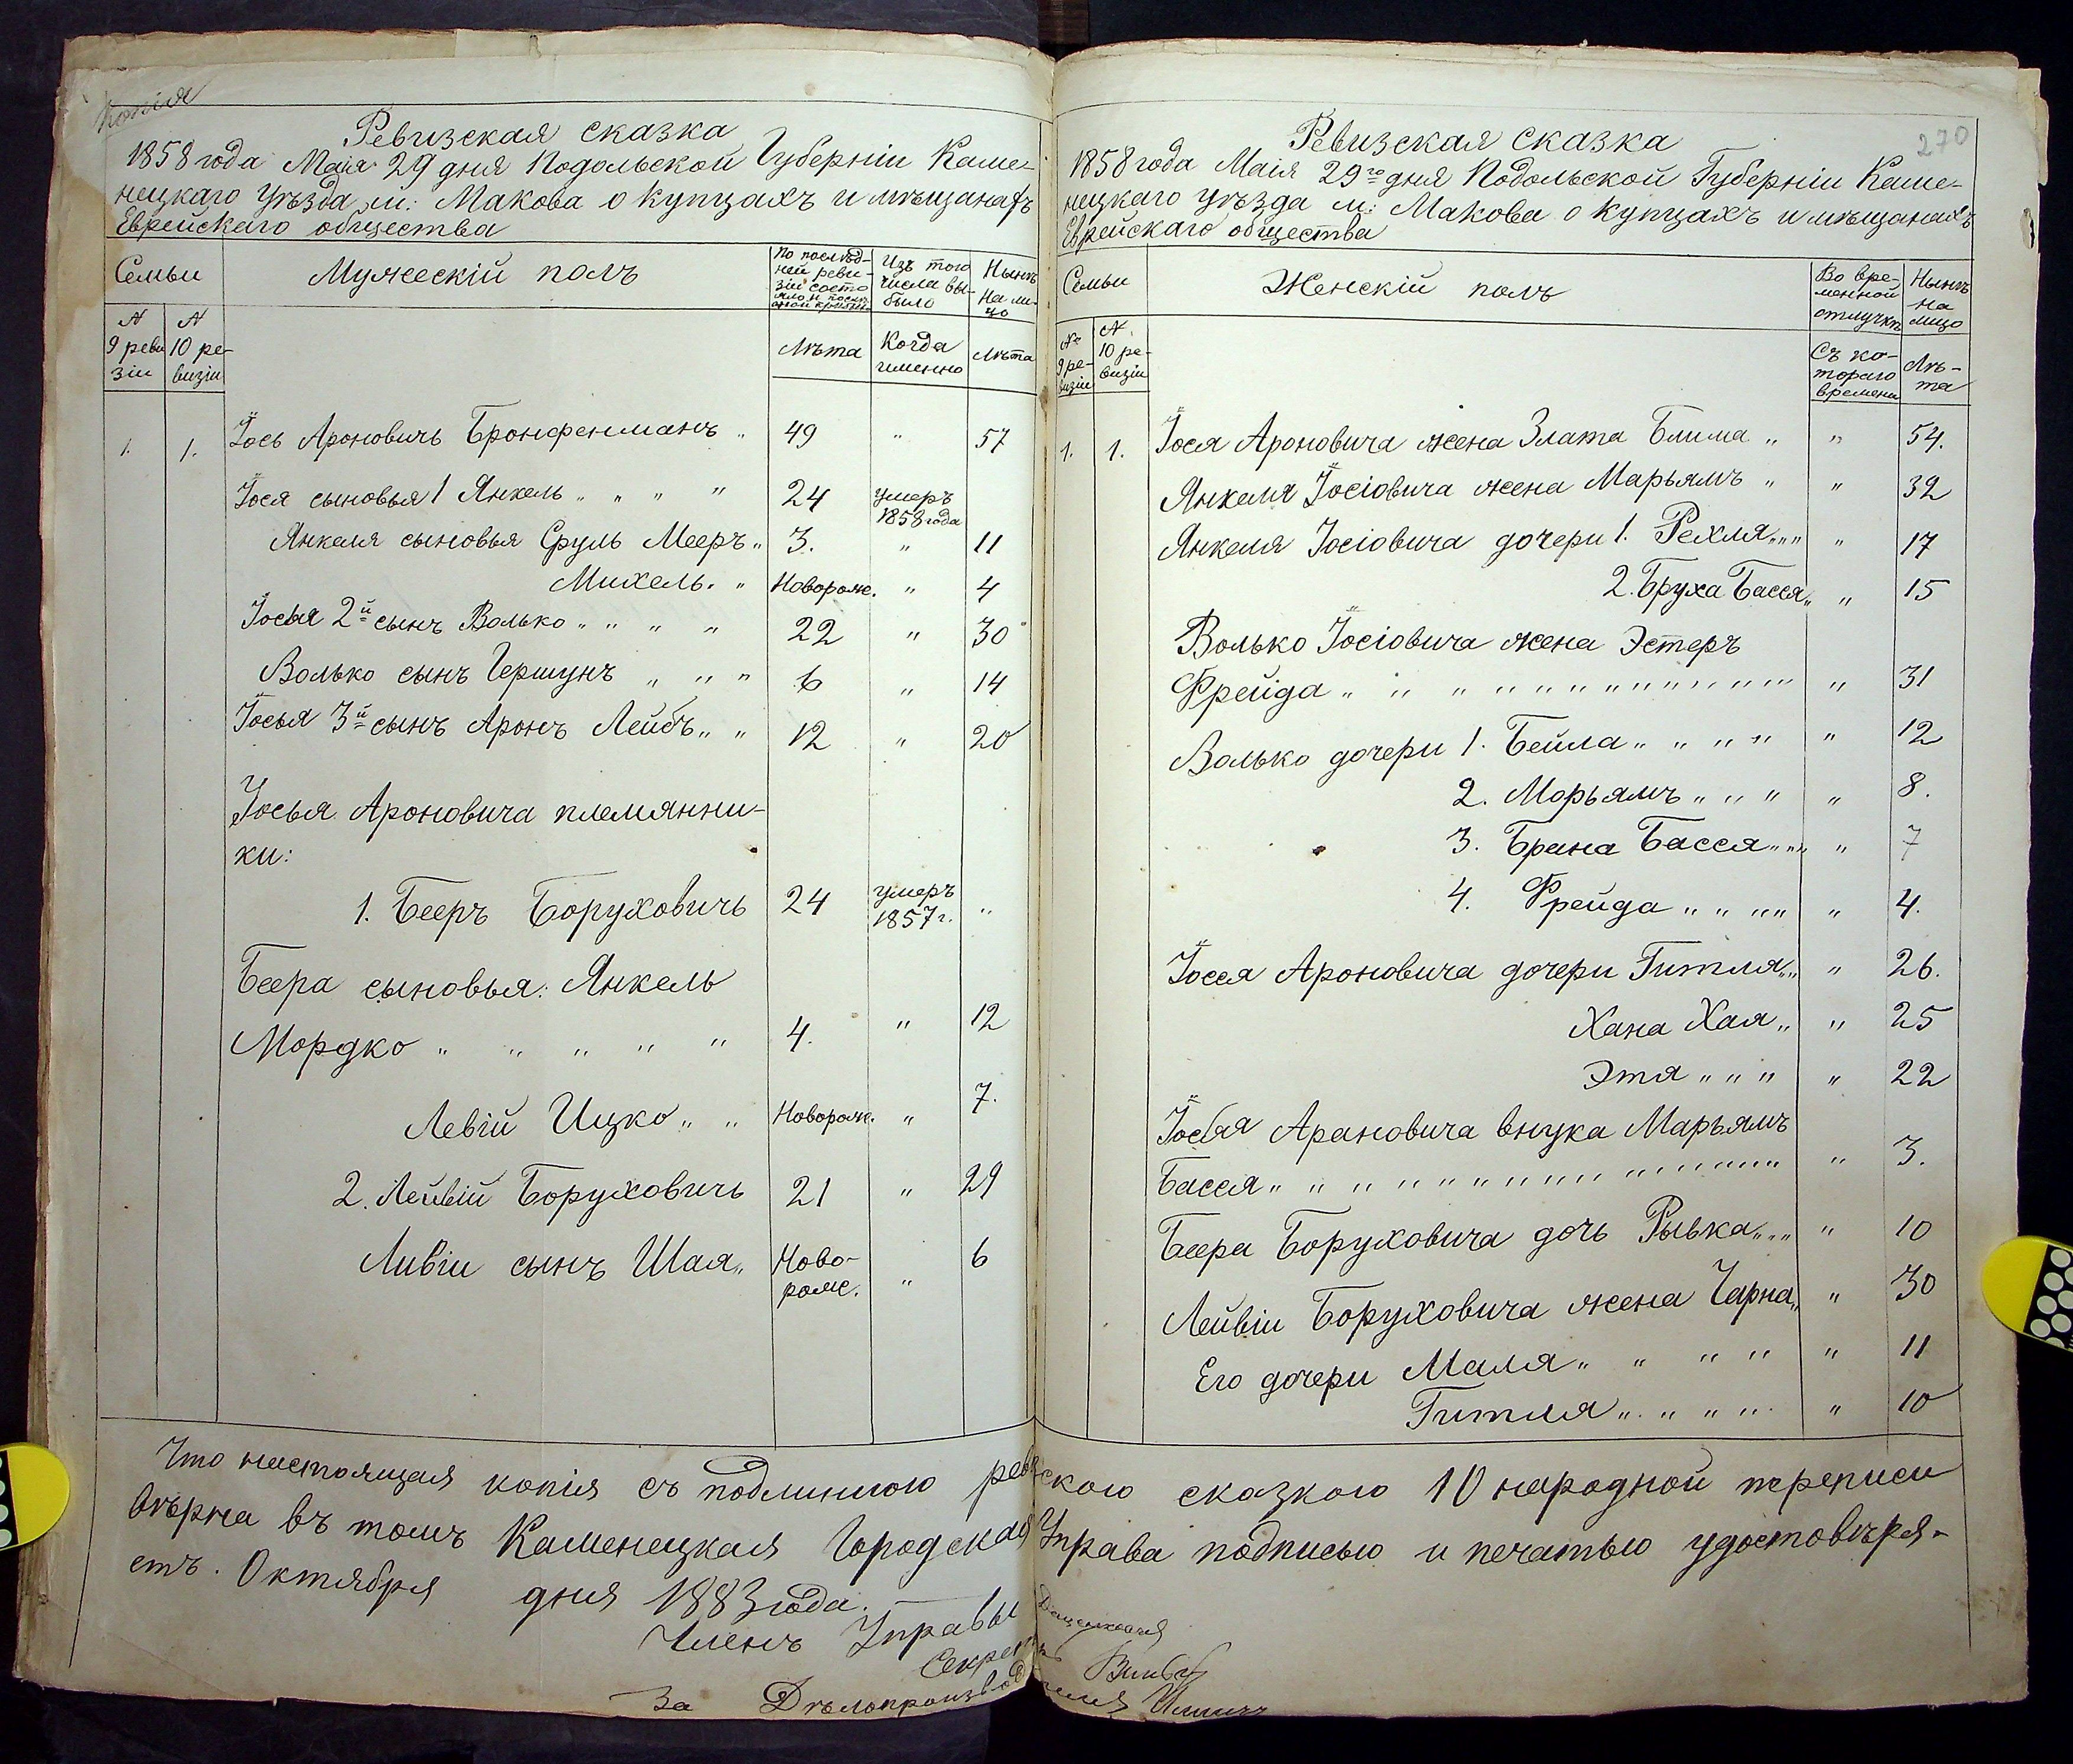 Копія
Ревизская сказка
1858 года Маія 29 дня Подольской Губерніи Каме-
нецкаго Уѣзда м: Макова о купцахъ и мѣщанахъ
Еврейскаго общества
Семьи
Мужескій полъ
По послѣд-
ней реви-
зіи состо
яло и послѣ
Изъ того
числа вы-
было
Нынѣ
На ли-
цо
N
9 реви
зіи
N
10 ре-
визіи
Лѣта
Когда
именно
Лѣта
1. 1. Іось Ароновичъ Бронфенманъ „ 49 „ 57
Іося сыновья 1 Янкель „ „ „ „ 24 умеръ
1858 года
Янкеля сыновья Сруль Мееръ „ 3. „ 11
Михель. „ Новорож. „ 4
Іосья 2й сынъ Волько „ „ „ „ 22 „ 30
Волько сынъ Гершунъ „ „ „ 6 „ 14
Іосья 3й сынъ Аронъ Лейбъ „ „ 12 „ 20
Іосья Ароновича племянни-
ки:
1. Бееръ Боруховичъ 24 умеръ
1857 г. „
Беера сыновья: Янкель
Мордко „ „ „ „ „ 4. „ 12
Левій Ицко „ „ Новорож. „ 7.
2. Лейвій Боруховичъ 21 „ 29
Ливіи сынъ Шая „ Ново-
рож. „ 6
270
Ревизская сказка
1858 года Маія 29го дня Подольской Губерніи Каме-
нецкаго уѣзда м: Макова о купцахъ и мѣщанахъ
Еврейскаго общества
Семьи
Женскій полъ
Во вре-
менной
отлучкѣ
Нынѣ
на
лицо
№
9 ре-
визіи
N
10 ре-
визіи
Съ ко-
тораго
времени
Лѣ-
та
1. 1. Іося Ароновича жена Злата Блима „ „ 54.
Янкеля Іосіовича жена Марьямъ „ „ 32
Янкеля Іосіовича дочери 1. Рехля „ „ „ „ 17
2. Бруха Басся „ „ 15
Волько Іосіовича жена Эстеръ
Фрейда „ „ „ „ „ „ „ „ „ „ „ „ „ „ 31
Волько дочери 1. Бейла „ „ „ „ „ 12
2. Морьямъ „ „ „ „ 8.
3. Брана Басся „ „ „ „ 7
4. Фрейда „ „ „ „ „ 4.
Іосся Ароновича дочери Гитля „ „ „ 26.
Хана Хая „ „ 25
Этя „ „ „ „ 22
Іосья Арановича внука Марьямъ
Басся „ „ „ „ „ „ „ „ „ „ „ „ „ „ 3.
Беера Боруховича дочь Рывка „ „ „ „ 10
Лейвіи Боруховича жена Чарна „ „ 30
Его дочери Маля „ „ „ „ „ 11
Гитля „ „ „ „ „ 10
Что настоящая копія съ подлинною ревизскою сказкою 10 народной переписи
вѣрна въ томъ Каменецкая Городская Управа подписью и печатью удостовѣря-
етъ. Октября дня 1883 года.
Членъ Управы
За Дѣлопроизвод